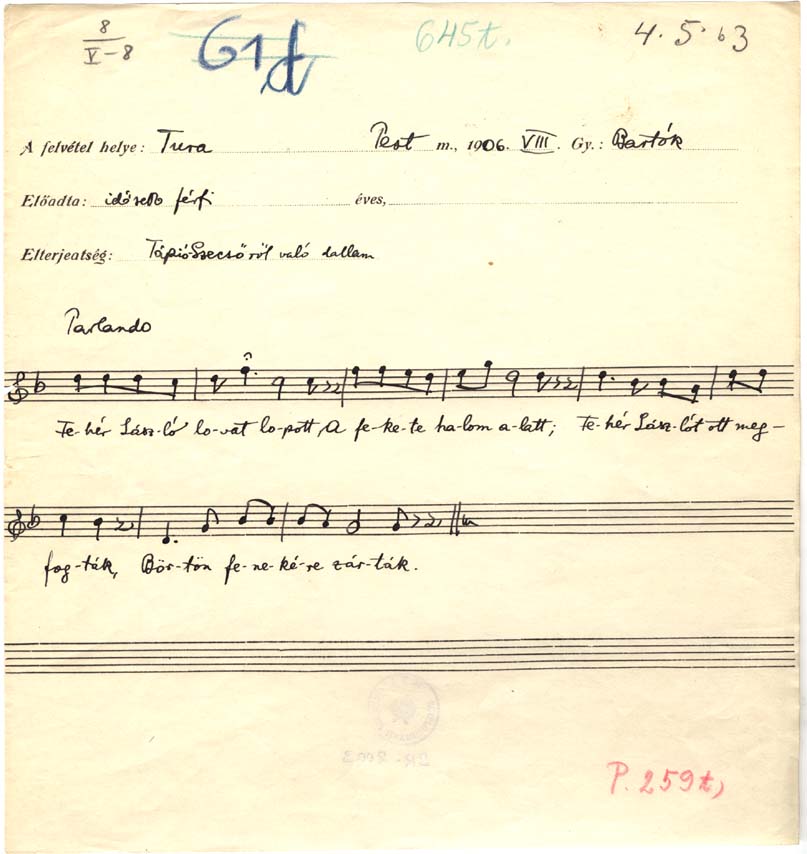 8
V-8
61d
645t.
4.5.63
A felvétel helye: Tura Pest m., 1906. VIII. Gy.: Bartók
Előadta: idősebb férfi éves,
Elterjeatség: TápióSzecsőről való dallam
Parlando
Fe-hér Lász-ló lo-vat lo-pott, A fe-ke-te ha-lom a-latt; Fe-hér Lász-lót ott meg-
fog-ták, Bör-tön fe-ne-ké-re zár-ták.
P. 259t,